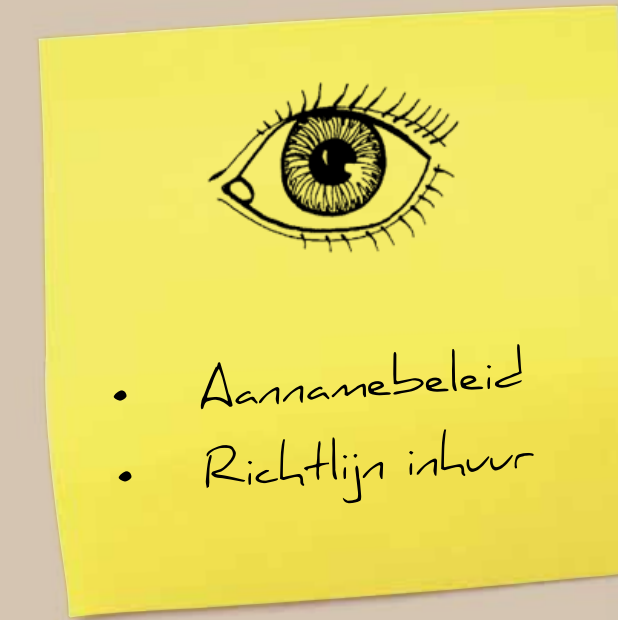 • Aannamebeleid
• Richtlijn inhuur